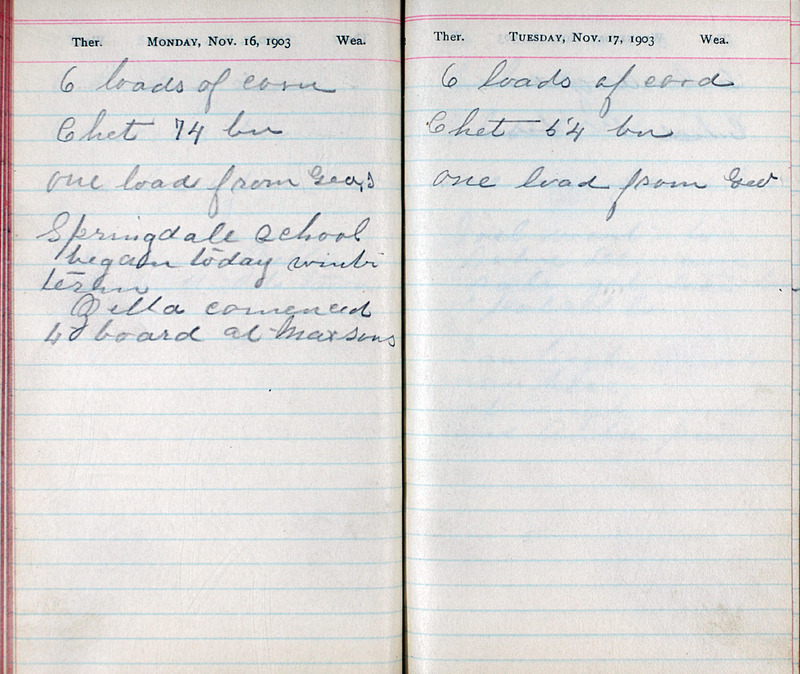 Ther. MONDAY, NOV. 16, 1903 Wea.
6 loads of corn
Chet 74 bu
one load from Geo,s
Springdale school
began today wint
term
comenced
to board at Maxsons
Ther. TUESDAY, NOV. 17, 1903 Wea.
6 loads of cord
Chet 54 bu
one load from Geo